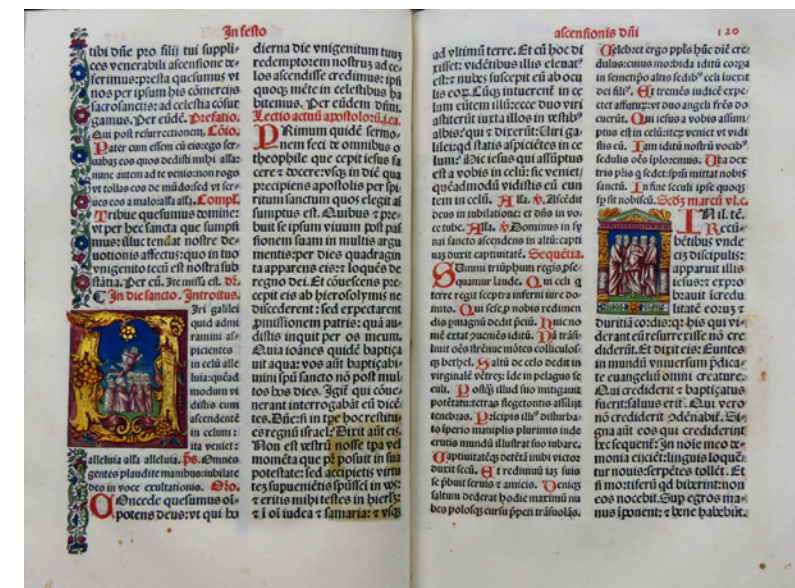 In festo
tibi dñe pro filij tui suppli⸗
ces venerabili ascensione de⸗
ferimus: presta quesumus vt
nos per ipsum his cõmercijs
sacrosanctis: ad celestia cõsur
gamus. Per eũdẽ. Prefatio.
Qui post resurrectionem. Cõio.
Pater cum essem cũ eis: ego ser⸗
uabaȝ eos quos dedisti mihi alla:
nunc autem ad te venio: non rogo
vt tollas eos de mũdo: sed vt ser⸗
ues eos a malo: alla alla. Compl.
Tribue quesumus domine:
vt per hec sancta que sumpsi
mus: illuc tendat nostre de⸗
uotionis affectus: quo in tuo
vnigenito tecũ est nostra sub
stãtia. Per eũ. Ite missa est.
In die sancto. Introitus.
Viri galilei
quid admi
ramini as⸗
picientes
in celũ alle
luia: quẽad
modum vi
distis eum
ascendentẽ
in celum:
ita veniet:
alleluia alla alleluia. p̃s. Omnes
gentes plaudite manibus: iubilate
deo in voce exultationis. Oro.
COncede quesumus oĩ⸗
potens deus: vt qui ho
dierna die vnigenitum tuuȝ
redemptorem nostruȝ ad ce⸗
los ascendisse credimus: ipsi
quoqȝ mẽte in celestibus ha
bitemus. Per eũdem dñm.
Lectio actuũ apostolor:
PRimum quidẽ sermo⸗
nem feci de omnibus o
theophile que cepit iesus fa
cere ⁊ docere: vsqȝ in diẽ qua
precipiens apostolis per spi
ritum sanctum quos elegit as
sumptus est. Quibus ⁊ pre⸗
buit se ipsum viuum post pas
sionem suam in multis argu
mentis: per dies quadragin
ta apparens eis: ⁊ loquẽs de
regno dei. Et cõuescens pre⸗
cepit eis ab hierosolymis ne
discederent: sed expectarent
ꝓmissionem patris: quã au⸗
distis inquit per os meum.
Quia ioãnes quidẽ baptiça
uit aqua: vos aũt baptiçabi⸗
mini spũ sancto nõ post mul
tos hos dies. Igit̃ qui cõue⸗
nerant interrogabãt eũ dicẽ
tes. Dñe: si in tp̃e hoc restitu⸗
es regnũ israel? Dixit aũt eis.
Non est vestrũ nosse tp̃a vel
momẽta que pr̃ posuit in sua
potestate: sed accipietis virtu
teȝ supueniẽtis spũssci in vos:
⁊ eritis mihi testes in hierl̃ȝ:
⁊ ĩ oĩ iudea ⁊ samaria: ⁊ vsqȝ
ascensionis dñi 120
ad vltimũ terre. Et cũ hoc di
xisset: vidẽtibus illis eleuat⁹
est: ⁊ nubeȝ suscepit eũ ab ocu
lis eoȝ. Cũqȝ intuerent̃ in ce
lum eũtem illũ: ecce duo viri
astiterũt iuxta illos in vestib⁹
albis: qui ⁊ dixerũt: Uiri ga⸗
lilei: qd̃ statis aspiciẽtes in ce
lum? Hic iesus qui assũptus
est a vobis in celũ: sic veniet/
quẽadmodũ vidistis eũ eun
tem in celũ. Alla. ꝟ. Ascẽdit
deus in iubilatione: et dñs in vo
ce tube. Alla. ꝟ Dominus in sy
nai sancto ascendens in altũ: capti
uaȝ duxit captiuitatẽ. Sequẽtia.
SUmmi triũphum regis ꝓse⸗
quamur laude. Qui celi q̃
terre regit sceptra inferni iure do⸗
mito. Qui sese ꝓ nobis redimen
dis pmagnũ dedit p̃ciũ. Huic no⸗
mẽ extat
liuit oẽs strẽnue mõtes colliculos⸗
qȝ bethel. Saltũ de celo dedit in
virginalẽ vẽtreȝ: ide in pelagus se
culi. Postqȝ illud suo mitigauit
potẽtatu: tetras flegetontis assilijt
tenebras. Principis illi⁹ disturba⸗
to ĩperio maniplis plurimis inde
erutis mundũ illustrat suo iubare.
Captiuitatẽqȝ detẽtã inibi victor
duxit secũ. Et rediuiuũ iaȝ suis
se p̃buit seruis ⁊ amicis. Deniqȝ
saltum dederat hodie maximũ nu
bes polosqȝ cursu p̃peti trãsuolãs.
Celebret ergo ppl̃s hũc diẽ cre⸗
dulus: cuius
in semetip̃o altis sedib⁹ celi inuexit
dei fili⁹. Et tremẽs iudicẽ expe⸗
ctet affuturȝ: vt duo angeli frẽs do
cuerũt. Qui iesus a vobis assum⸗
ptus est in celũ: iteȝ veniet vt vidi
stis eũ. Iam iditũ nostrũ vocib⁹
sedulis oẽs ĩploremus. Ut a dex
tris p̃tis q̃ sedet: spm̃ mittat nobis
sanctũ. In fine seculi ipse quoqȝ
sp̃ sit nobiscũ. Scd̃ȝ marcũ vl.c.
IN il. tẽ.
Recũ⸗
bẽtibus vnde
ciȝ discipulis:
apparuit illis
iesus: ⁊ expro
brauit ĩcredu
litatẽ eoruȝ ⁊
duritiã cordis: qȝ his qui vi⸗
derant eũ resurrexisse nõ cre
diderũt. Et dixit eis: Euntes
in mundũ vniuersum p̃dica⸗
te euangeliũ omni creature.
Qui crediderit ⁊ baptiçatus
fuerit: saluus erit. Qui vero
nõ crediderit ↄdẽnabit̃. Si⸗
gna aũt eos qui crediderint
hec sequent̃: In noĩe meo de⸗
monia eijciẽt: linguis loquẽ⸗
tur nouis: serpẽtes tollẽt. Et
si mortiferũ qd̃ biberint: non
eos nocebit. Sup egros ma⸗
nus ĩponent: ⁊ bene habebũt.